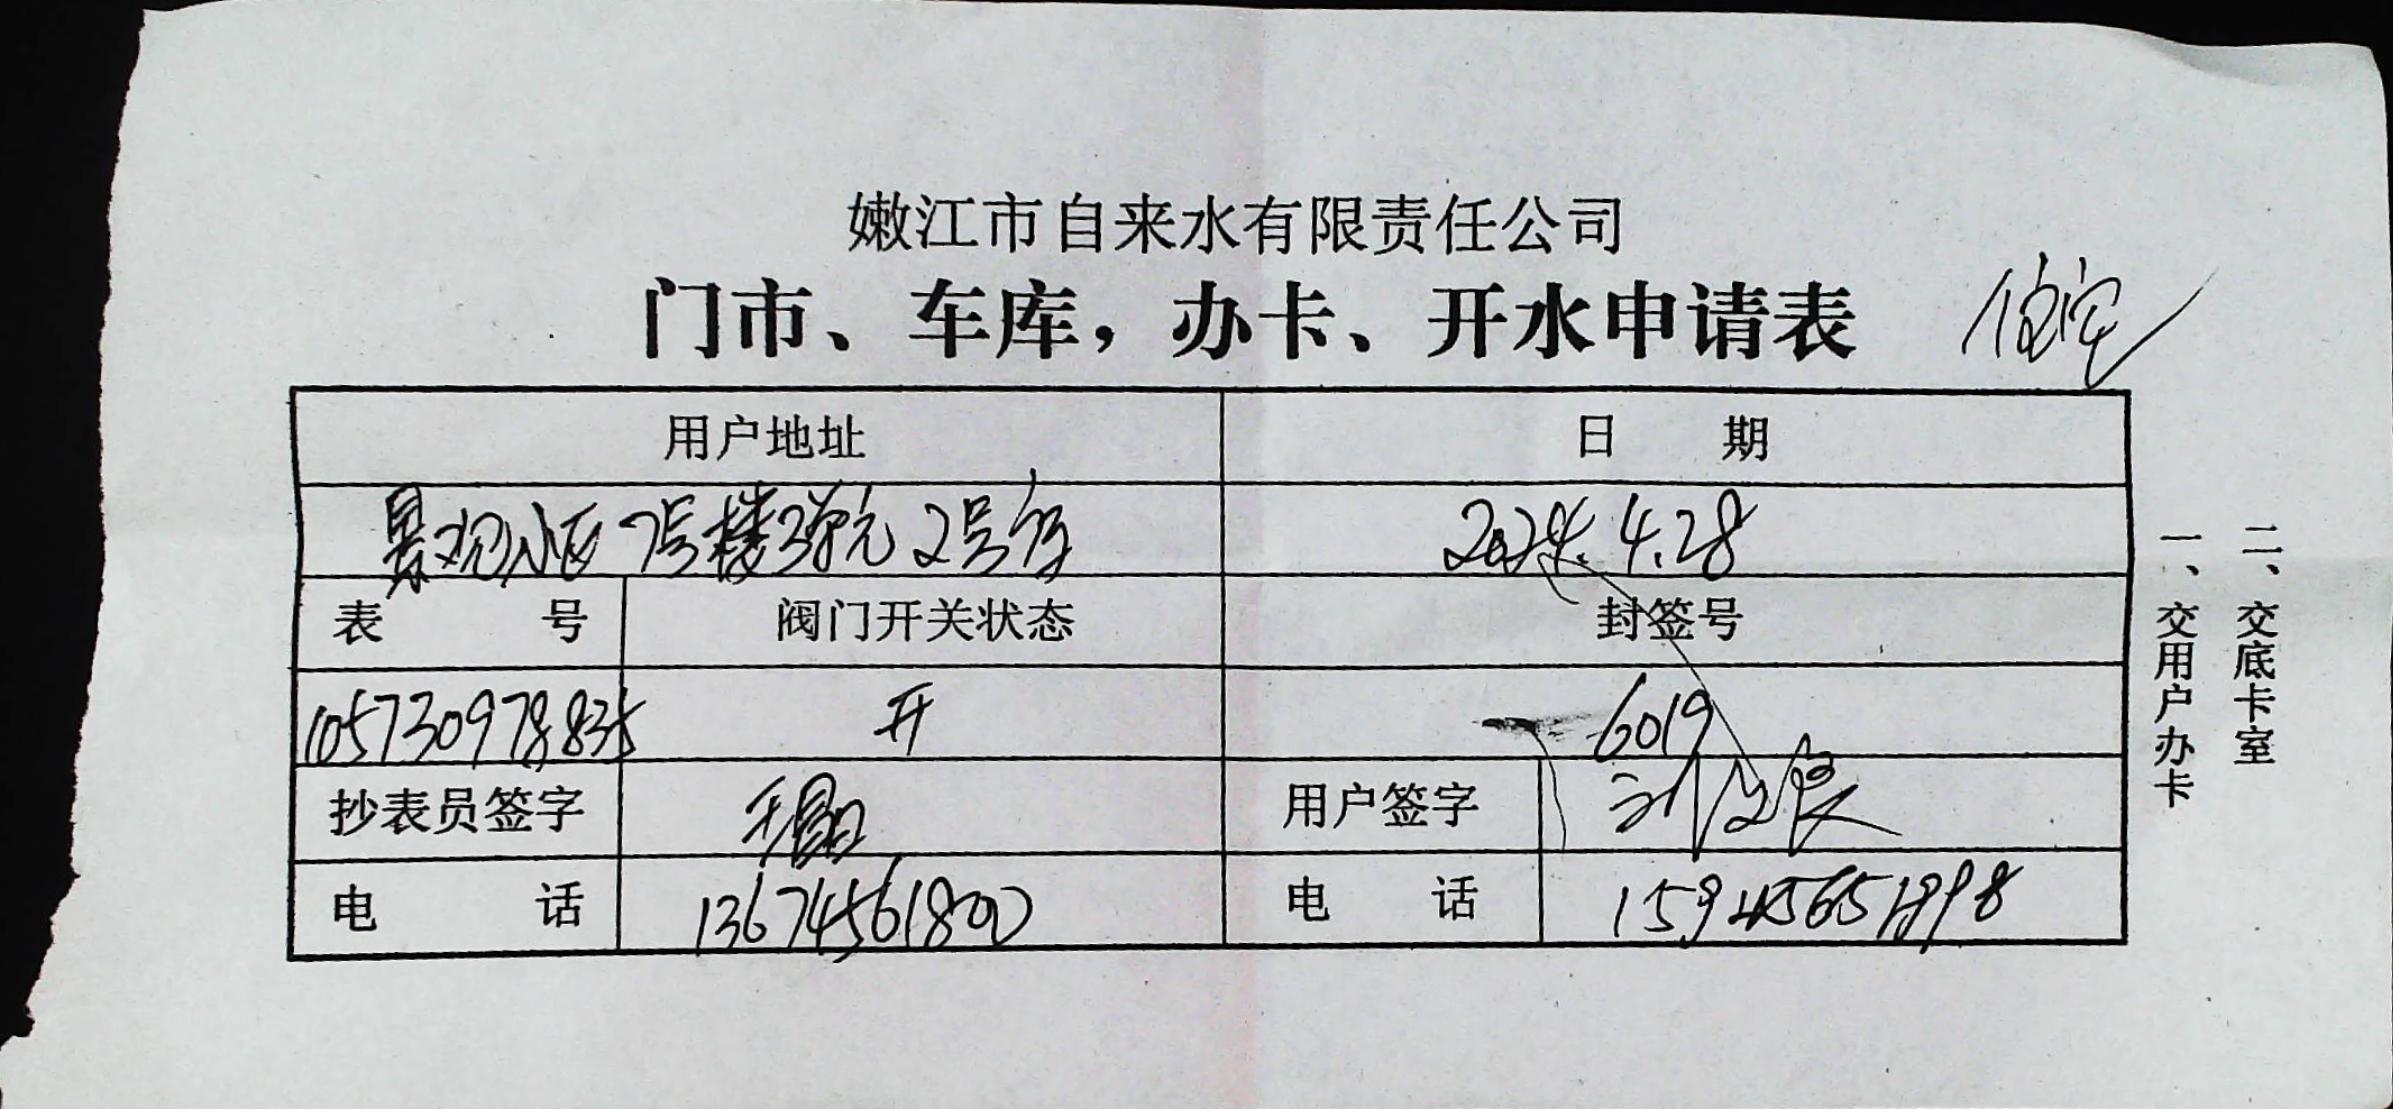 嫩江市自来水有限责任公司
门市、车库，办卡、开水申请表 住宅
用户地址 日 期
景观小区 7号楼3单元 2号房 2024.4.28
表 号 阀门开关状态 封签号
105730978835 开 6019
抄表员签字 用户签字
电 话 13674561800 电 话 15945651898
一、交用户办卡
二、交底卡室